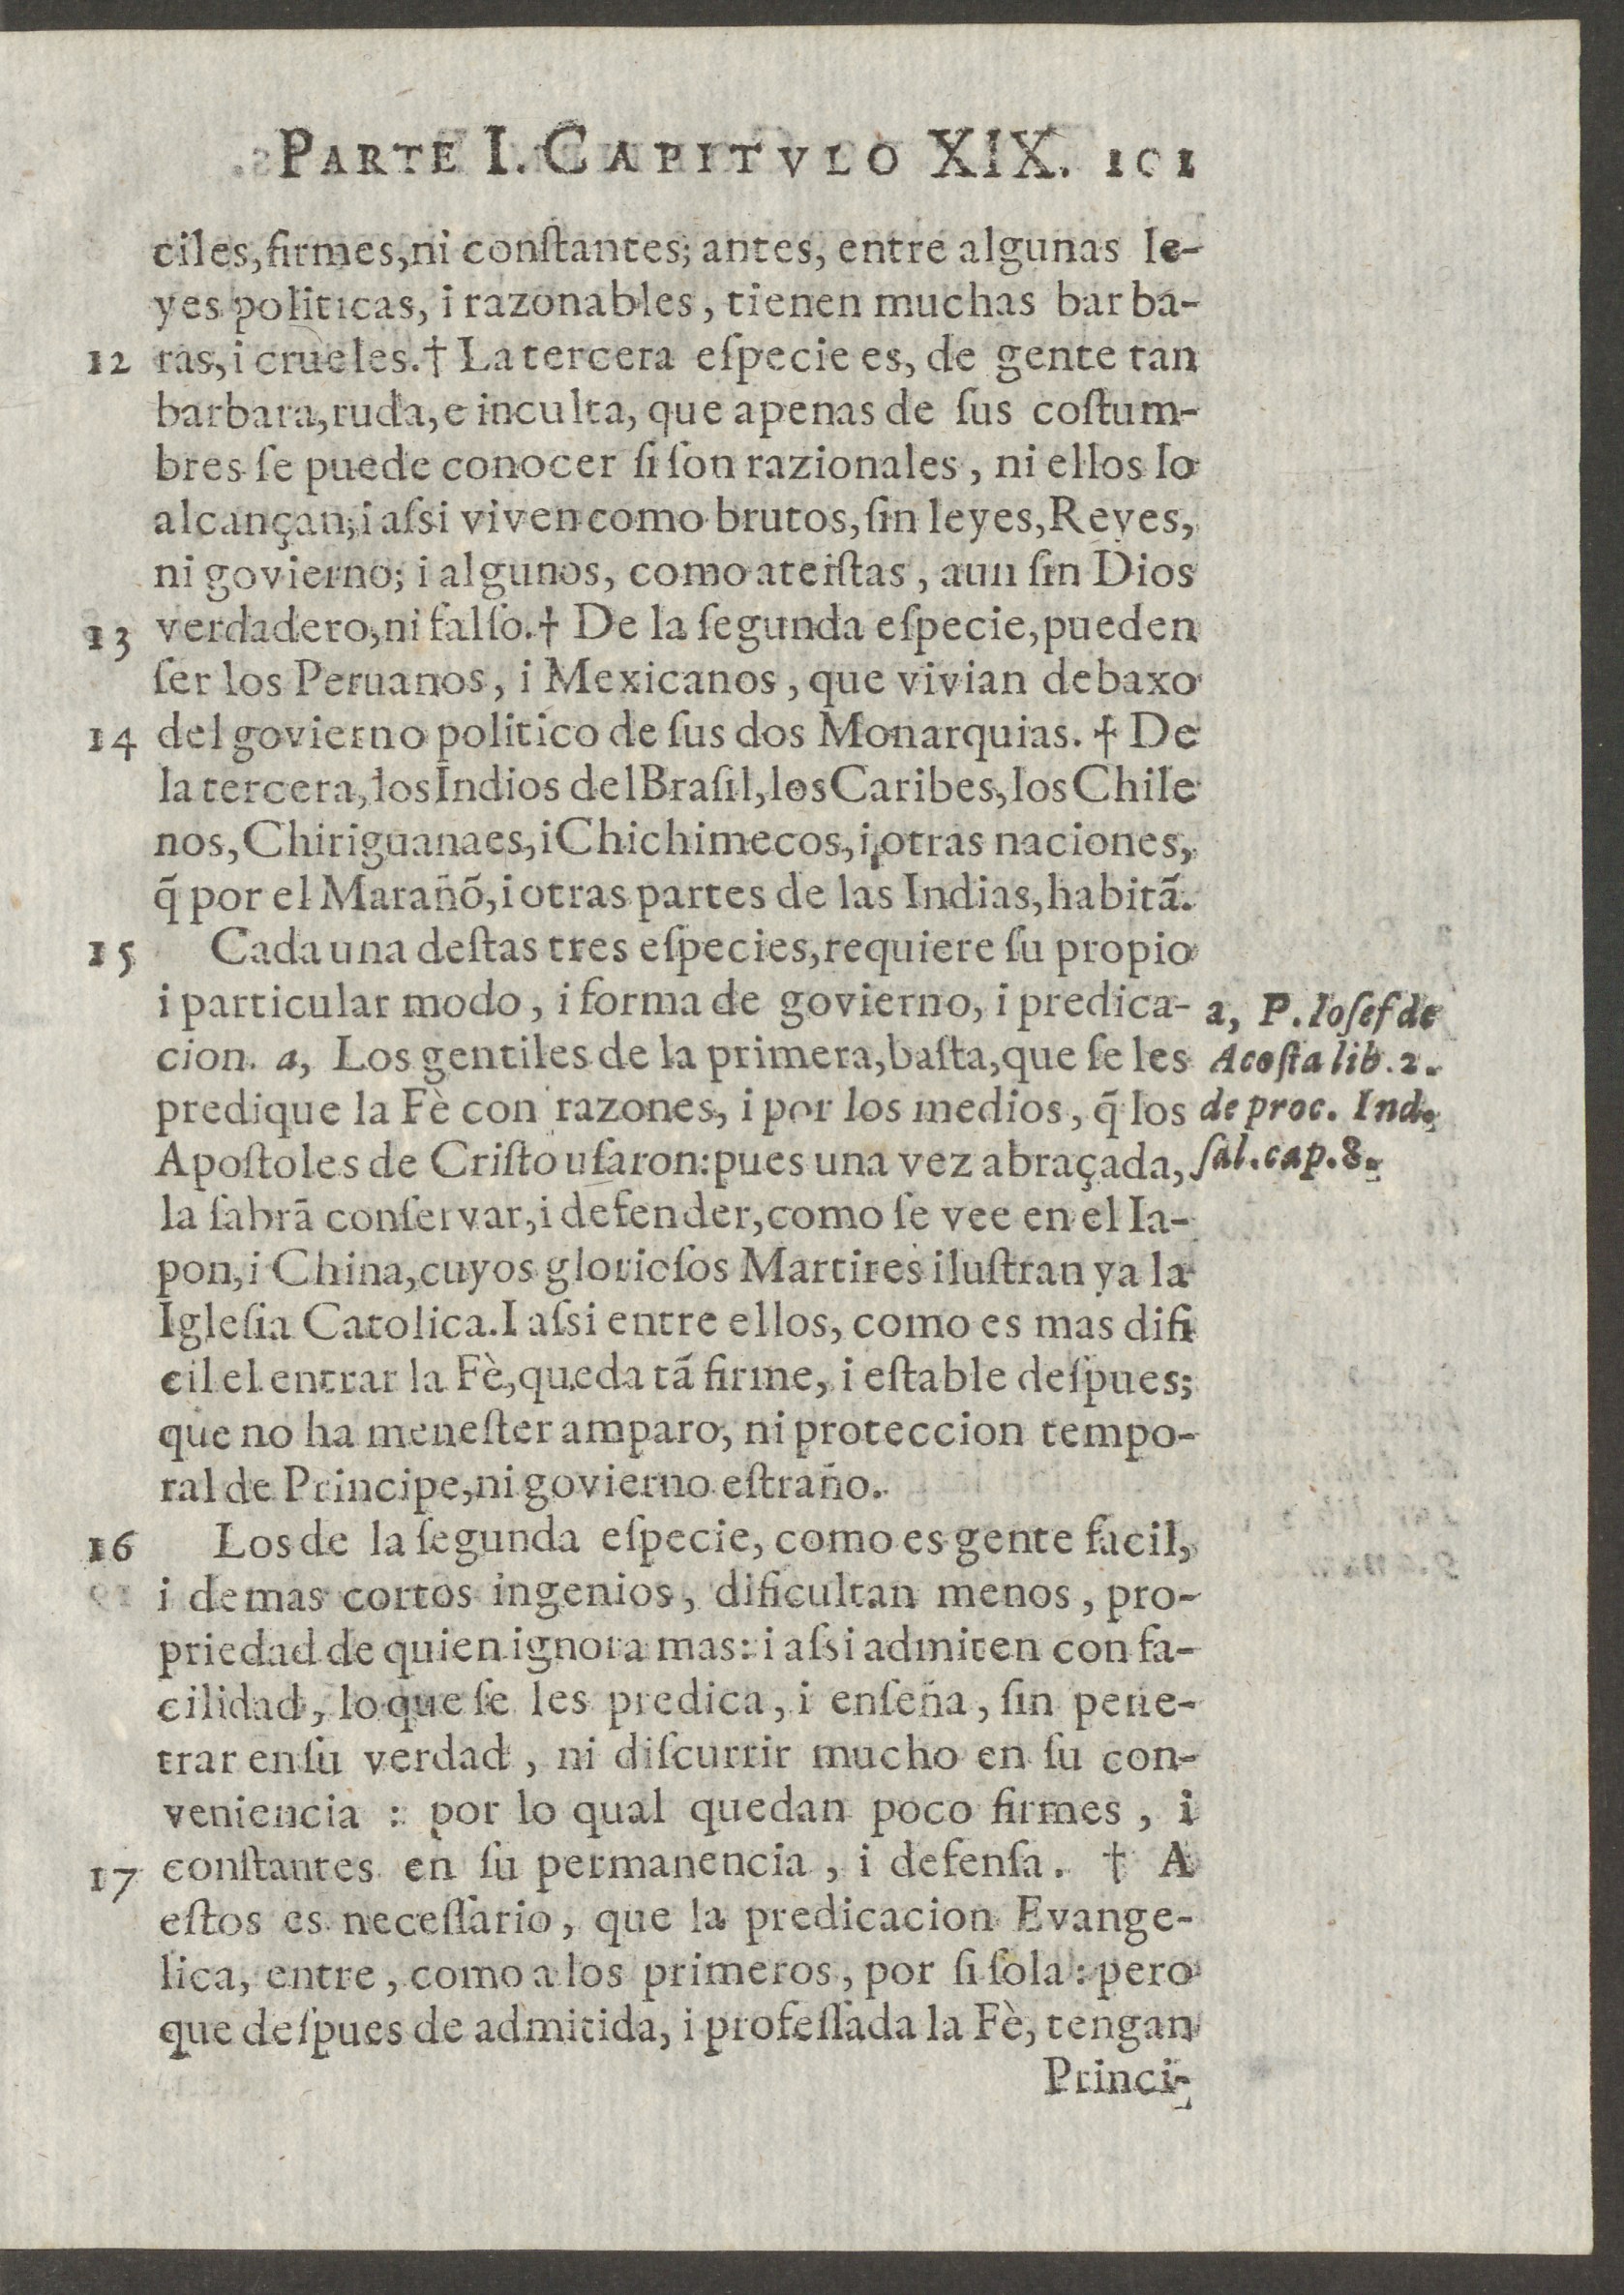 PARTE I. CAPITVLO XIX. 101
ciles, firmes, ni conſtantes; antes, entre algunas le-
yes politicas, i razonables, tienen muchas barba-
12 ras, i crueles.† La tercera eſpecie es, de gente tan
barbara, ruda, e inculta, que apenas de ſus coſtum-
bres ſe puede conocer ſi ſon razionales, ni ellos lo
alcançan; i aſsi viven como brutos, ſin leyes, Reyes,
ni govierno; i algunos, como ateiſtas, aun ſin Dios
13 verdadero, ni falſo.† De la ſegunda eſpecie, pueden
ſer los Peruanos, i Mexicanos, que vivian debaxo
14 del govierno politico de ſus dos Monarquias. † De
la tercera, los Indios del Braſil, los Caribes, los Chile
nos, Chiriguanaes, i Chichimecos, i otras naciones,
q̃ por el Marañõ, i otras partes de las Indias, habitã.
15 Cada una deſtas tres eſpecies, requiere ſu propio
i particular modo, i forma de govierno, i predica-
cion. a, Los gentiles de la primera, baſta, que ſe les
predique la Fè con razones, i por los medios, q̃ los
Apoſtoles de Criſto uſaron: pues una vez abraçada,
la ſabrã conſervar, i defender, como ſe vee en el Ia-
pon, i China, cuyos glorioſos Martires iluſtran ya la
Igleſia Catolica. I aſsi entre ellos, como es mas difi
cil el entrar la Fè, queda tã firme, i eſtable deſpues;
que no ha meneſter amparo, ni proteccion tempo-
ral de Principe, ni govierno eſtraño.
a, P. Ioſef de
Acoſta lib. 2.
de proc. Ind.
ſal. cap. 8.
16 Los de la ſegunda eſpecie, como es gente facil,
i de mas cortos ingenios, dificultan menos, pro-
priedad de quien ignora mas: i aſsi admiten con fa-
cilidad, lo que ſe les predica, i enſeña, ſin pene-
trar en ſu verdad, ni diſcurrir mucho en ſu con-
veniencia : por lo qual quedan poco firmes, i
17 conſtantes en ſu permanencia, i defenſa. † A
eſtos es neceſſario, que la predicacion Evange-
lica, entre, como a los primeros, por ſi ſola: pero
que deſpues de admitida, i profeſſada la Fè, tengan
Princi-